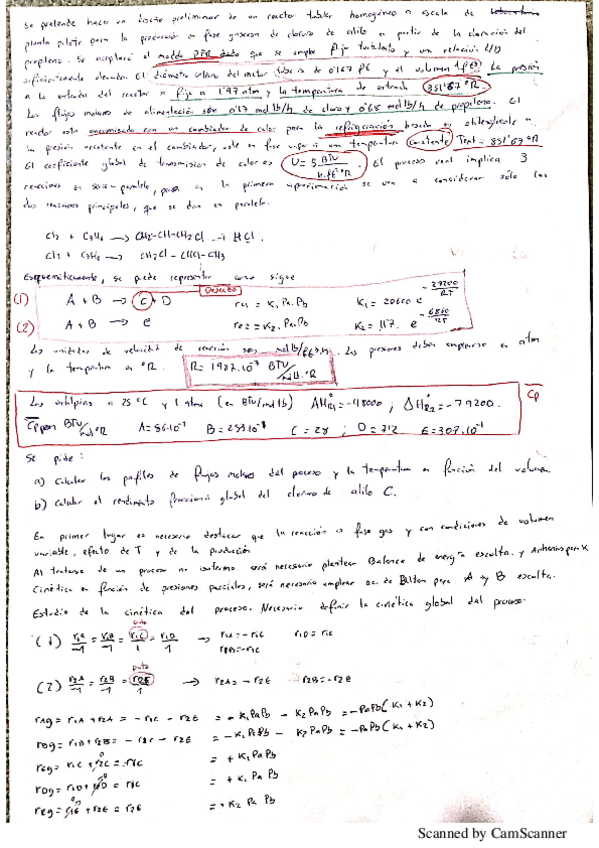 Se pretende hacer un diseño preliminar de un reactor tubular homogéneo a escala de
planta piloto para la producción en fase gaseosa de cloruro de alilo a partir de la cloración del
propileno. Se aceptará el modelo PFR dado que se emplea flujo turbulento y una relación L/D
suficientemente elevada. El diámetro interno del reactor tubular es de 0'167 ft y el volumen 1 ft3. La presión
a la entrada del reactor se fija a 1'97 atm y la temperatura de entrada 851'67 ºR
Los flujos molares de alimentación son 0'17 mol lb/h de cloro y 0'68 mol lb/h de propileno. El
reactor está encamisado con un cambiador de calor para la refrigeración basado en etilenglicol a
la presión existente en el cambiador, este en fase vapor a una temperatura constante Text = 851'67 ºR
El coeficiente global de transmisión de calor es U = 5 BTU/h.ft2 ºR. El proceso real implica 3
reacciones en serie-paralelo, pero en la primera aproximación se van a considerar sólo las
dos reacciones principales, que se dan en paralelo.
Cl2 + C3H6 → CH2-CH-CH2Cl + HCl.
Cl2 + C3H6 → CH2Cl - CHCl-CH3
Esquemáticamente, se puede representar como sigue
Deseado
(1) A + B → C + D rc1 = K1 Pa.Pb K1 = 20600 e -27200/RT
(2) A + B → E re2 = K2. Pa.Pb K2 = 11'7. e -6860/RT
Las unidades de velocidad de reacción son mol lb/ft3.h. Las presiones deben emplearse en atm
y la temperatura en ºR. R = 1987.10-3 BTU/mol lb.ºR
Las entalpías a 25 ºC y 1 atm (en BTU/mol lb) ΔHR1 = -48000 ; ΔHR2 = -79200. Cp
Cp en BTU/mol ºR A = 86.10-1 B = 253.10-1 C = 28 ; D = 7'2 E = 307.10-1
Se pide:
a) Calcular los perfiles de flujos molares del proceso y la temperatura en función del volumen
b) Calcular el rendimiento fraccional global del cloruro de alilo C.
En primer lugar es necesario destacar que la reacción es fase gas y con condiciones de volumen
variable, efecto de T y de la producción
Al tratarse de un proceso no isotermo será necesario plantear Balance de energía escolta. y Arrhenius para K
Cinética en función de presiones parciales, será necesario emplear ec. de Dalton para A y B escolta.
Estudio de la cinética del proceso. Necesario definir la cinética global del proceso.
Dato
(1) r1A/-1 = r1B/-1 = r1C/1 = r1D/1 → r1A = -r1C r1D = r1C
r1B = -r1C
Dato
(2) r2A/-1 = r2B/-1 = r2E/1 → r2A = -r2E r2B = -r2E
rAg = r1A + r2A = - r1C - r2E = - K1PaPb - K2 PaPb = -PaPb (K1 + K2)
rBg = r1B + r2B = - r1C - r2E = - K1PaPb - K2 PaPb = -PaPb (K1 + K2)
rCg = r1C + r2C = r1C = + K1 PaPb
rDg = r1D + r2D = r1C = + K1 Pa Pb
rEg = r1E + r2E = r2E = + K2 Pa Pb
Scanned by CamScanner